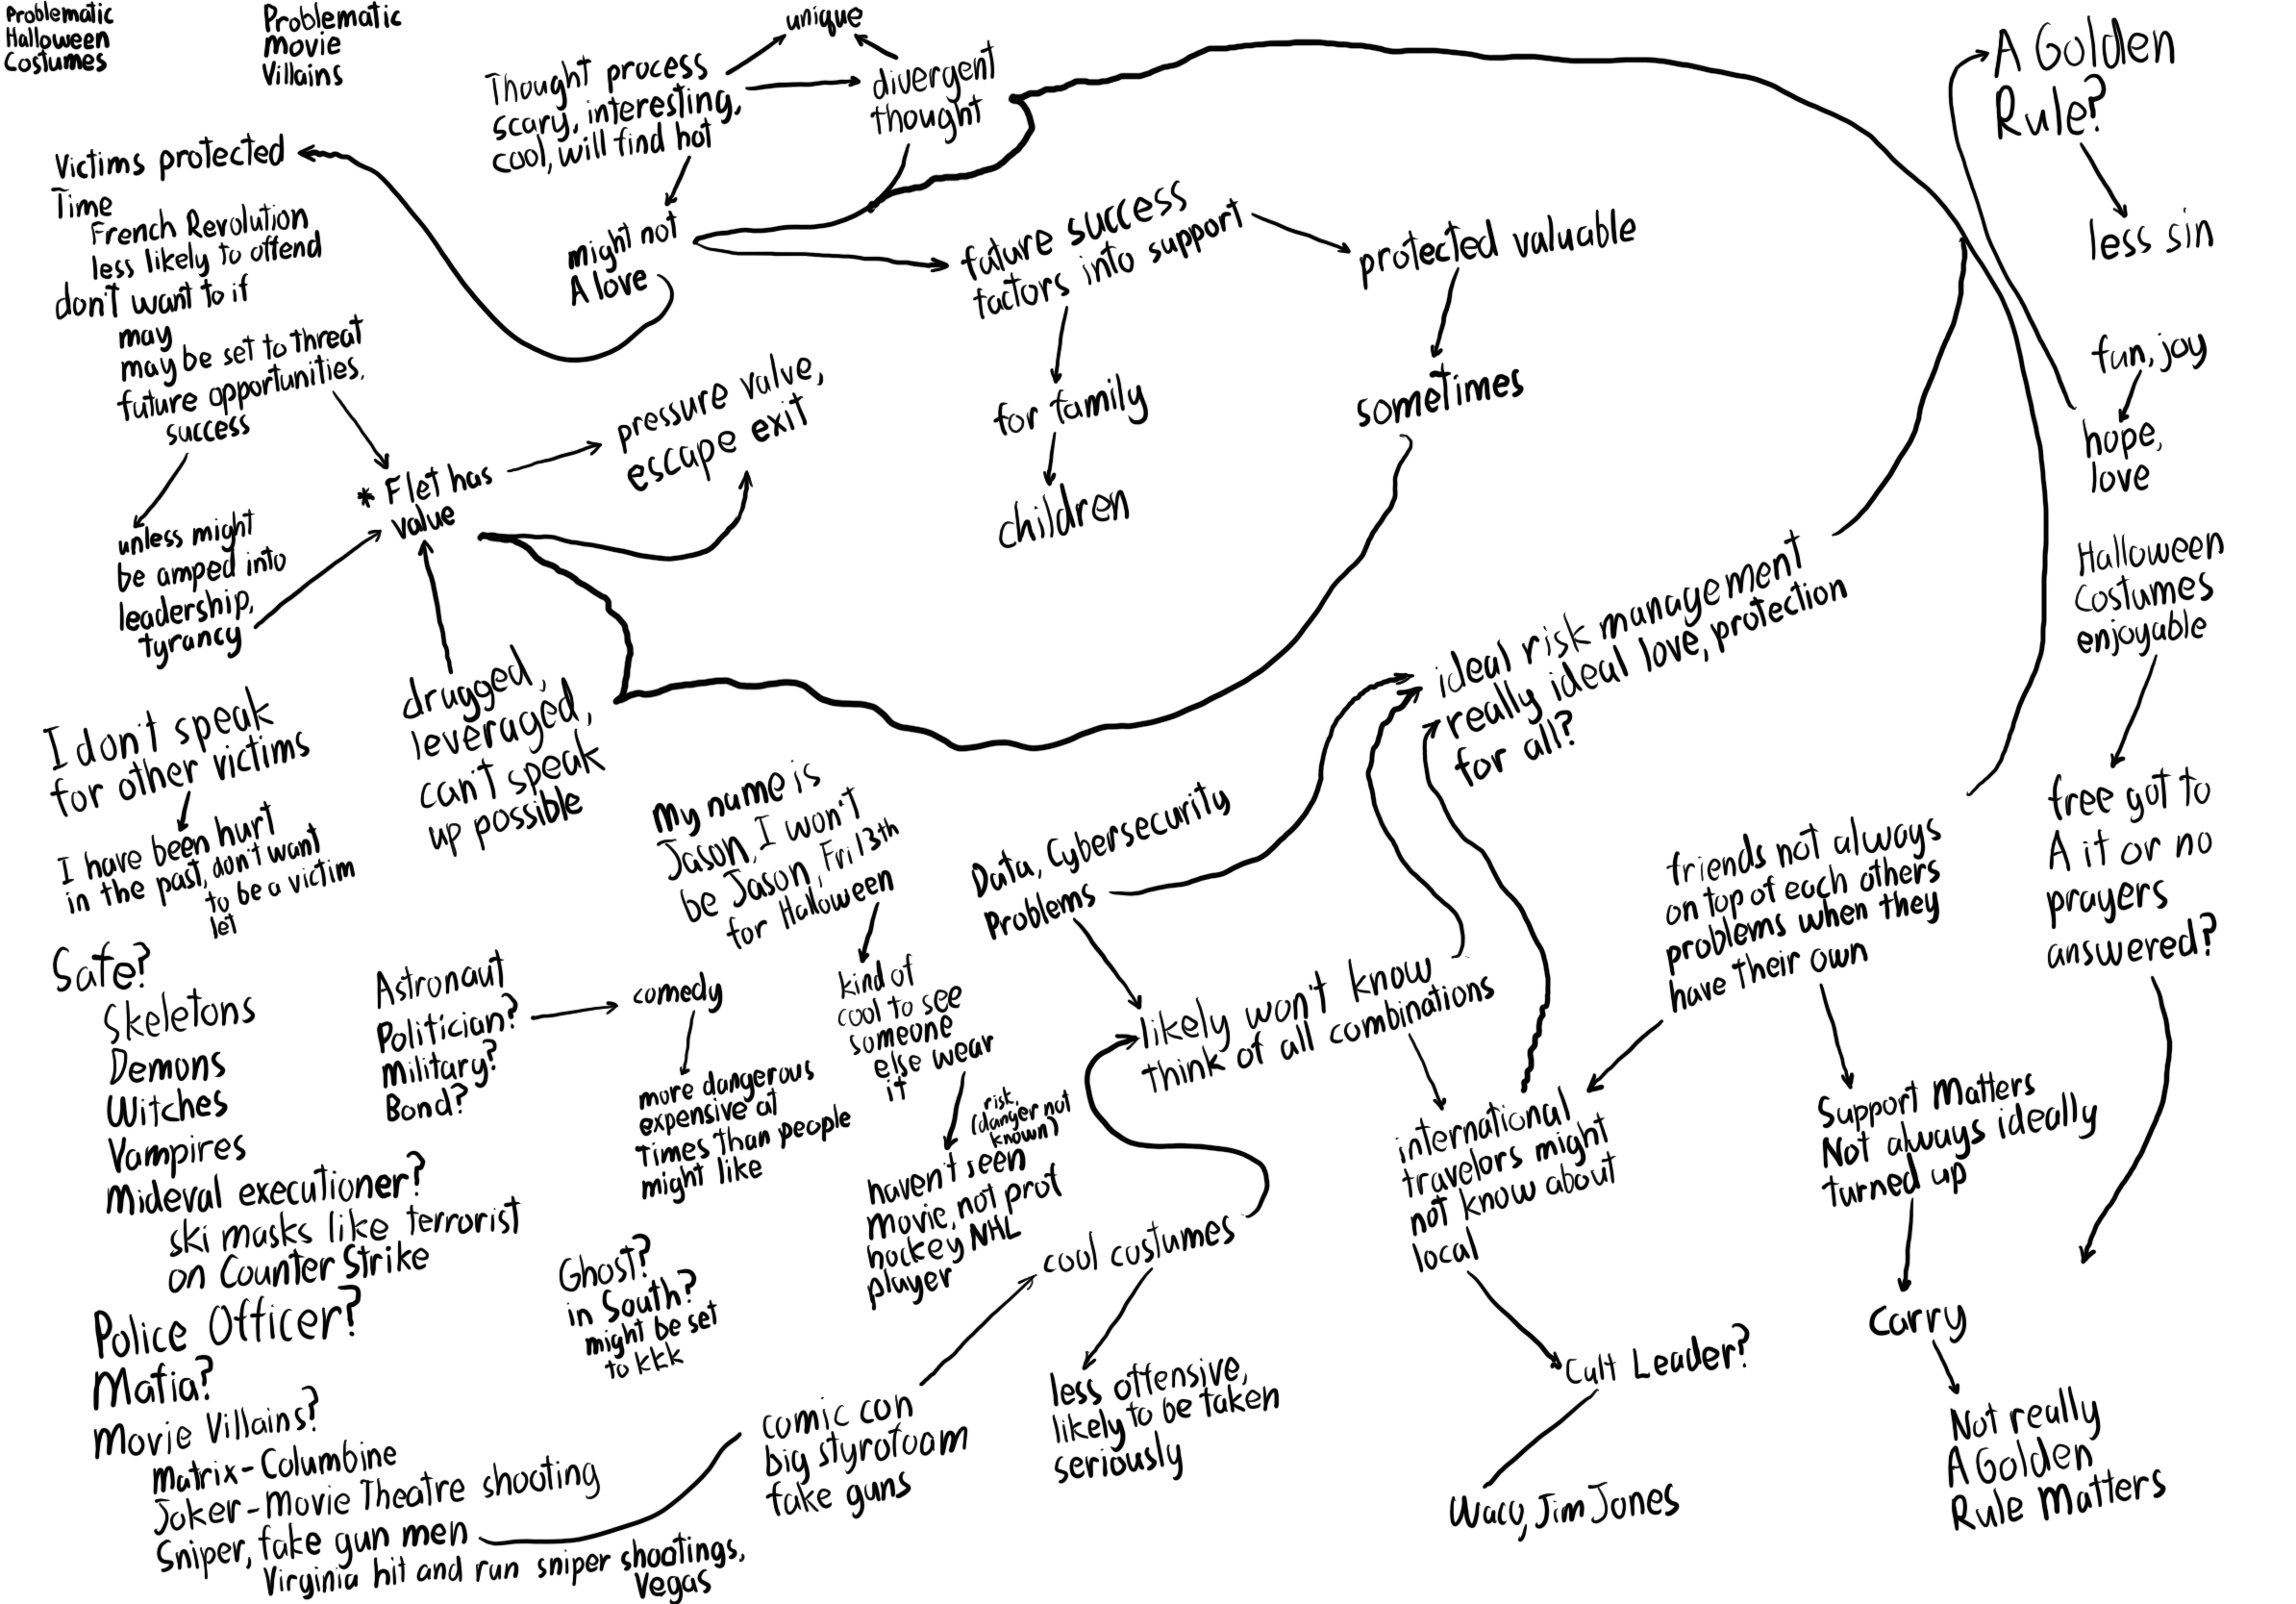 Problematic
Halloween
Costumes
Problematic
Movie
Villains
unique
Thought process
scary, interesting,
cool, will find hot
divergent
thought
A Golden
Rule?
less sin
Victims protected
Time
French Revolution
less likely to offend
don't want to if
may
may be set to threat
future opportunities,
success
might not
A love
future success
factors into support
protected valuable
for family
children
sometimes
fun, joy
hope,
love
* Flet has
value
pressure valve,
escape exit
unless might
be amped into
leadership,
tyrancy
drugged,
leveraged,
can't speak
up possible
I don't speak
for other victims
I have been hurt
in the past, don't want
to be a victim
let
My name is
Jason, I won't
be Jason, Fri 13th
for Halloween
kind of
cool to see
someone
else wear
it
risk,
(danger not
known)
haven't seen
movie, not prof
hockey NHL
player
Data, Cybersecurity
Problems
ideal risk management
really ideal love, protection
for all?
Halloween
Costumes
enjoyable
free got to
A it or no
prayers
answered?
friends not always
on top of each others
problems when they
have their own
likely won't know
think of all combinations
international
travelors might
not know about
local
Support Matters
Not always ideally
turned up
Carry
Not really
A Golden
Rule Matters
Cult Leader?
Waco, Jim Jones
Safe?
Skeletons
Demons
Witches
Vampires
Mideval executioner?
ski masks like terrorist
on Counter Strike
Police Officer?
Mafia?
Movie Villains?
Matrix - Columbine
Joker - Movie Theatre shooting
Sniper, fake gun men
Virginia hit and run sniper shootings,
Vegas
Astronaut
Politician?
Military?
Bond?
comedy
more dangerous
expensive at
times than people
might like
Ghost?
in South?
might be set
to KKK
comic con
big styrofoam
fake guns
cool custumes
less offensive,
likely to be taken
seriously